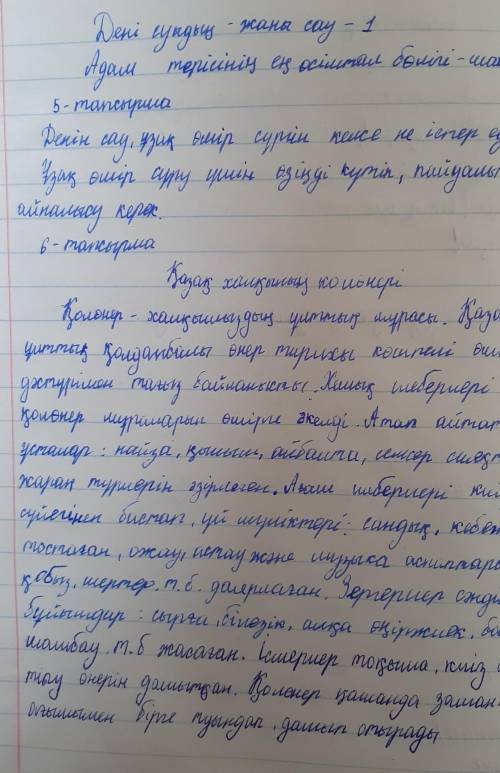 Дені саудың - жаны сау - 1
Адам терісінің ең өсімтал бөлігі - шаш
5 - тапсырма
Денің сау, ұзақ өмір сүргің келсе не істер ед
Ұзақ өмір сүру үшін өзіңді күтіп, пайдалы
айналысу керек.
6 - тапсырма
Қазақ халқының қолөнері
Қолөнер - халқымыздың ұлттық мұрасы. Қаза
ұлттық қолданбалы өнер тарихы көшпелі өм
дәстүрімен тығыз байланысты. Халық шеберлері
қолөнер мұраларын өмірге әкелді. Атап айтат
ұсталар: найза, қылыш, айбалта, семсер сияқт
жарақ түрлерін әзірлеген. Ағаш шеберлері киі
сүйегінен бастап, үй мүліктері: сандық, кебеж
тостаған, ожау, астау және музыка аспаптары
қобыз, шертер т.б. даярлаған. Зергерлер сәнді
бұйымдар: сырға, білезік, алқа өңіржиек,
шолпы т.б жасаған. Ісмерлер тоқыма, киіз
тігу өнерін дамытқан. Қолөнер қашанда заман
ағымымен бірге туындап, дамып отырады